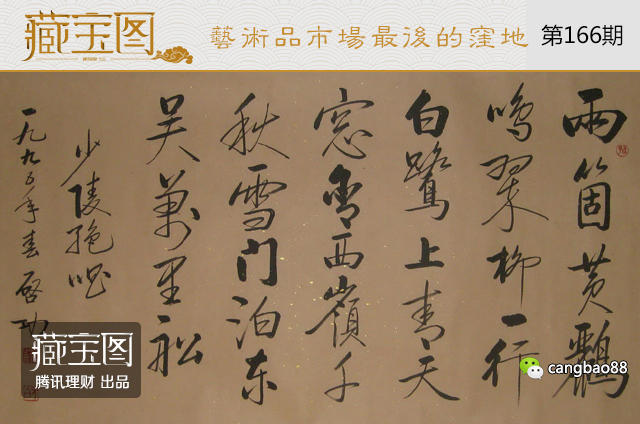 藏宝图
藝術品市場最後的窪地
第166期
兩箇黄鸝
鳴翠柳一行
白鷺上青天
窓含西嶺千
秋雪门泊东
吴萬里船
少陵絶唱
一九九五年春 啓功
藏宝图
腾讯理财 出品
cangbao88